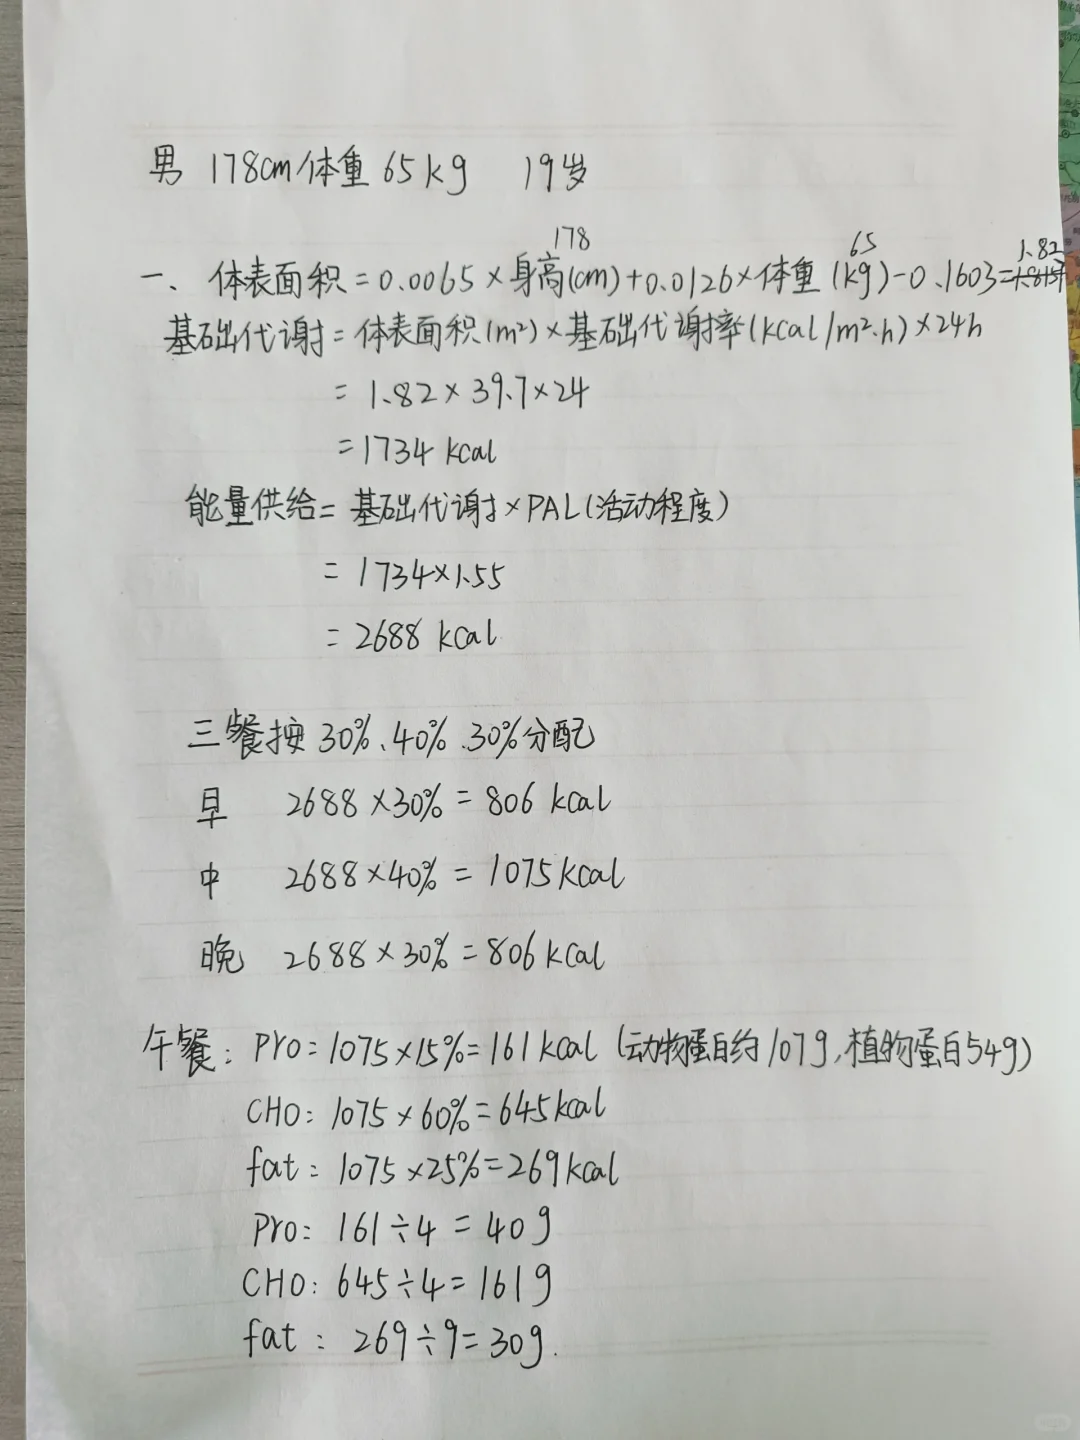 男 178cm 体重 65kg 19岁
178 65 1.82
一、体表面积=0.0065×身高(cm)+0.0126×体重(kg)-0.1603=
基础代谢=体表面积(m²)×基础代谢率(kcal/m².h)×24h
=1.82×39.7×24
=1734 kcal
能量供给=基础代谢×PAL(活动程度)
=1734×1.55
=2688 kcal
三餐按30%、40%、30%分配
早 2688×30%=806 kcal
中 2688×40%=1075kcal
晚 2688×30%=806kcal
午餐：Pro=1075×15%=161kcal(动物蛋白约107g,植物蛋白54g)
CHO:1075×60%=645kcal
fat:1075×25%=269kcal
Pro:161÷4=40g
CHO:645÷4=161g
fat:269÷9=30g.